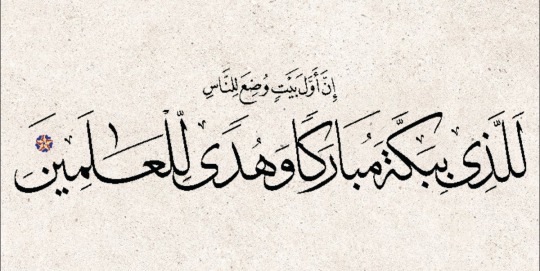 إِنَّ أَوَّلَ بَيْتٍ وُضِعَ لِلنَّاسِ
لَلَّذِى بِبَكَّةَ مُبَارَكًا وَهُدًى لِّلْعَالَمِينَ